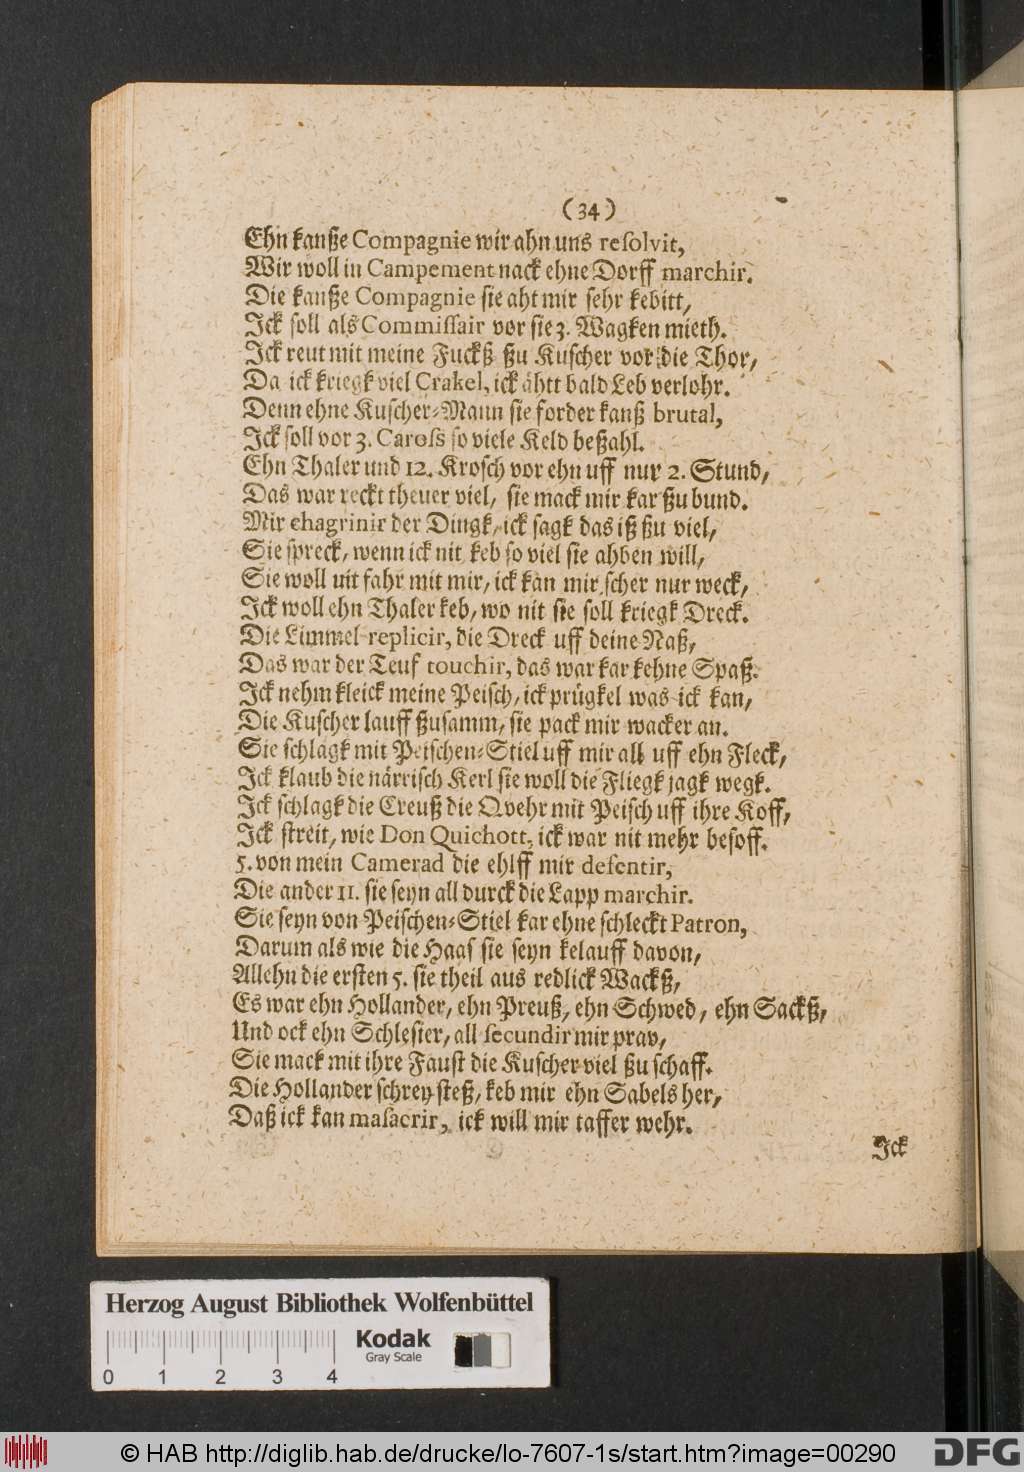 (34)
Ehn kanße Compagnie wir ahn uns resolvit,
Wir woll in Campement nack ehne Dorff marchir.
Die kanße Compagnie sie aht mir sehr kebitt,
Jck soll als Commissair vor sie 3. Wagken mieth.
Jck reut mit meine Fuckß ßu Kuscher vor die Thor,
Da ick kriegk viel Crakel, ick ähtt bald Leb verlohr.
Denn ehne Kuscher-Mann sie forder kanß brutal,
Jck soll vor 3. Caross so viele Keld beßahl.
Ehn Thaler und 12. Krosch vor ehn uff nur 2. Stund,
Das war reckt theuer viel, sie mack mir kar ßu bund.
Mir chagrinir der Dingk, ick sagk das iß ßu viel,
Sie spreck, wenn ick nit keb so viel sie ahben will,
Sie woll nit fahr mit mir, ick kan mir scher nur weck,
Jck woll ehn Thaler keb, wo nit sie soll kriegk Dreck.
Die Limmel replicir, die Dreck uff deine Naß,
Das war der Teuf touchir, das war kar kehne Spaß.
Jck nehm kleick meine Peisch, ick prügkel was ick kan,
Die Kuscher lauff ßusamm, sie pack mir wacker an.
Sie schlagk mit Peischen-Stiel uff mir all uff ehn Fleck,
Jck klaub die närrisch Kerl sie woll die Fliegk jagk wegk.
Jck schlagk die Creuß die Qvehr mit Peisch uff ihre Koff,
Jck streit, wie Don Quichott, ick war nit mehr besoff.
5. von mein Camerad die ehlff mir defentir,
Die ander 11. sie seyn all durck die Lapp marchir.
Sie seyn von Peischen-Stiel kar ehne schleckt Patron,
Darum als wie die Haas sie seyn kelauff davon,
Allehn die ersten 5. sie theil aus redlick Wackß,
Es war ehn Hollander, ehn Preuß, ehn Schwed, ehn Sackß,
Und ock ehn Schlesier, all secundir mir prav,
Sie mack mit ihre Faust die Kuscher viel ßu schaff.
Die Hollander schrey steß, keb mir ehn Sabels her,
Daß ick kan masacrir, ick will mir taffer wehr.
Jck
Herzog August Bibliothek Wolfenbüttel
Kodak
Gray Scale
0 1 2 3 4
© HAB http://diglib.hab.de/drucke/lo-7607-1s/start.htm?image=00290
DFG